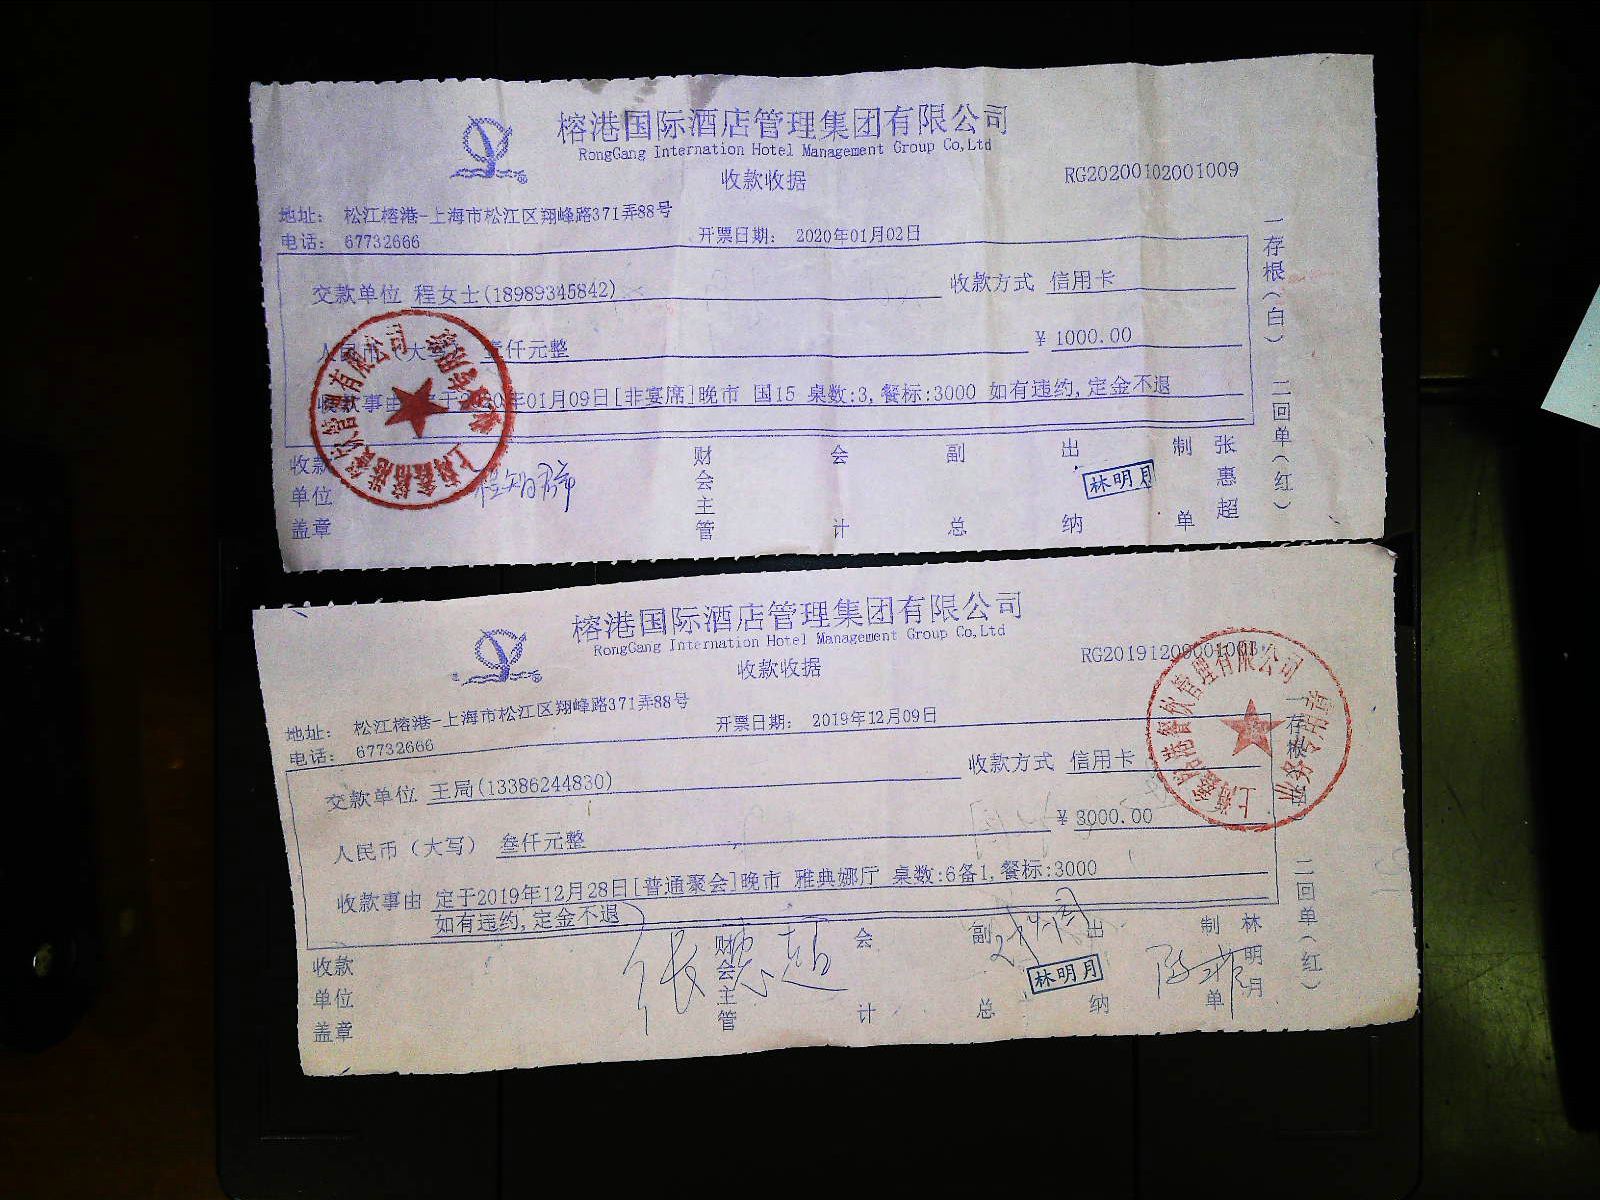 榕港国际酒店管理集团有限公司
RongGang Internation Hotel Management Group Co,Ltd
收款收据
RG20200102001009
地址： 松江榕港-上海市松江区翔峰路371弄88号
电话： 67732666
开票日期： 2020年01月02日
交款单位 程女士(18989345842)
收款方式 信用卡
人民币（大写） 壹仟元整
¥ 1000.00
收款事由 定于2020年01月09日[非宴席]晚市 国15 桌数:3,餐标:3000 如有违约,定金不退
收款单位盖章
财会主管
会计
副总
出纳
林明月
制单
张惠超
一存根(白)
二回单(红)
榕港国际酒店管理集团有限公司
RongGang Internation Hotel Management Group Co,Ltd
收款收据
地址： 松江榕港-上海市松江区翔峰路371弄88号
电话： 67732666
开票日期： 2019年12月09日
交款单位 王局(13386244830)
收款方式 信用卡
人民币（大写） 叁仟元整
¥ 3000.00
收款事由 定于2019年12月28日[普通聚会]晚市 雅典娜厅 桌数:6备1,餐标:3000
如有违约,定金不退
收款单位盖章
财会主管
张惠超
会计
副总
出纳
林明月
制单
林明月
二回单(红)
上海鑫榕港餐饮管理有限公司
业务专用章